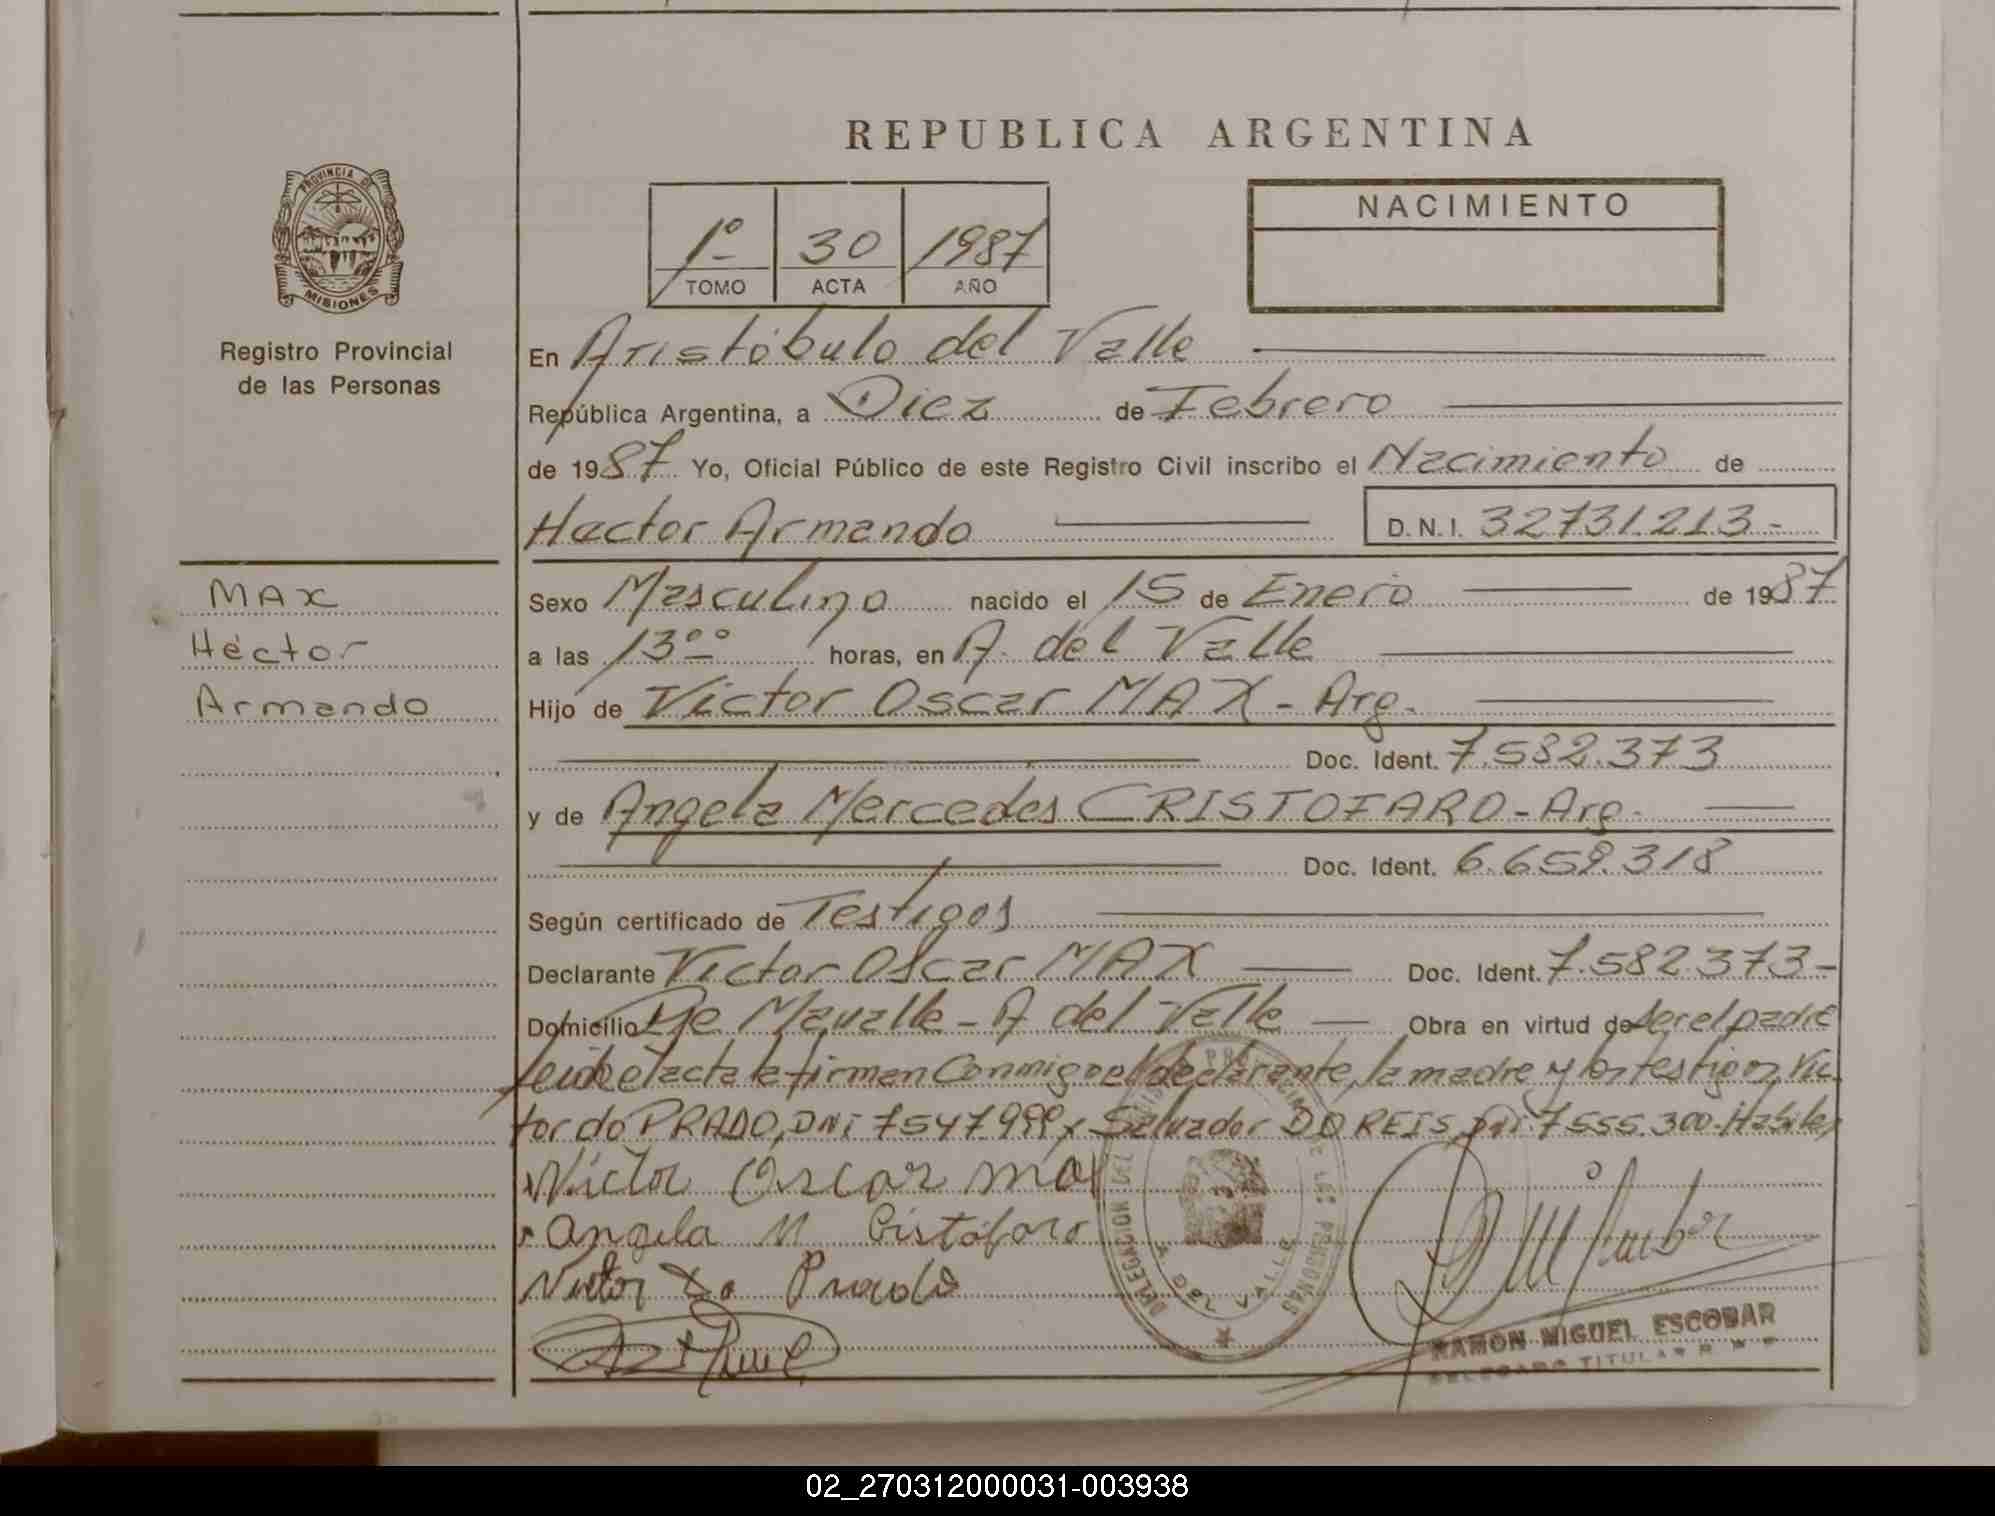 REPUBLICA ARGENTINA
PROVINCIA DE
MISIONES
Registro Provincial
de las Personas
1º 30 1987
TOMO ACTA AÑO
NACIMIENTO
En Aristóbulo del Valle
República Argentina, a Diez de Febrero
de 1987 Yo, Oficial Público de este Registro Civil inscribo el Nacimiento de
Hector Armando D.N.I. 32731.213.-
MAX
Héctor
Armando
Sexo Masculino nacido el 15 de Enero de 1987
a las 13⁰⁰ horas, en A. del Valle
Hijo de Víctor Oscar MAX - Arg.
Doc. Ident. 7.582.373
y de Angela Mercedes CRISTOFARO - Arg.
Doc. Ident. 6.659.318
Según certificado de Testigos
Declarante Víctor Oscar MAX Doc. Ident. 7.582.373-
Domicilio Pje Mavalle - A del Valle Obra en virtud de ser el padre
leida el acta la firman Conmigo el declarante, la madre y los testigos, Vic
tor do PRADO, DNI 7547999 y Salvador DO REIS, DNI 7.555.300. Habiles
Victor Oscar max
Angela M Cristófaro
Victor Do Prado
DELEGACION DEL REGISTRO PROVINCIAL DE LAS PERSONAS
A. DEL VALLE
RAMON MIGUEL ESCOBAR
DELEGADO TITULAR R P P
02_270312000031-003938